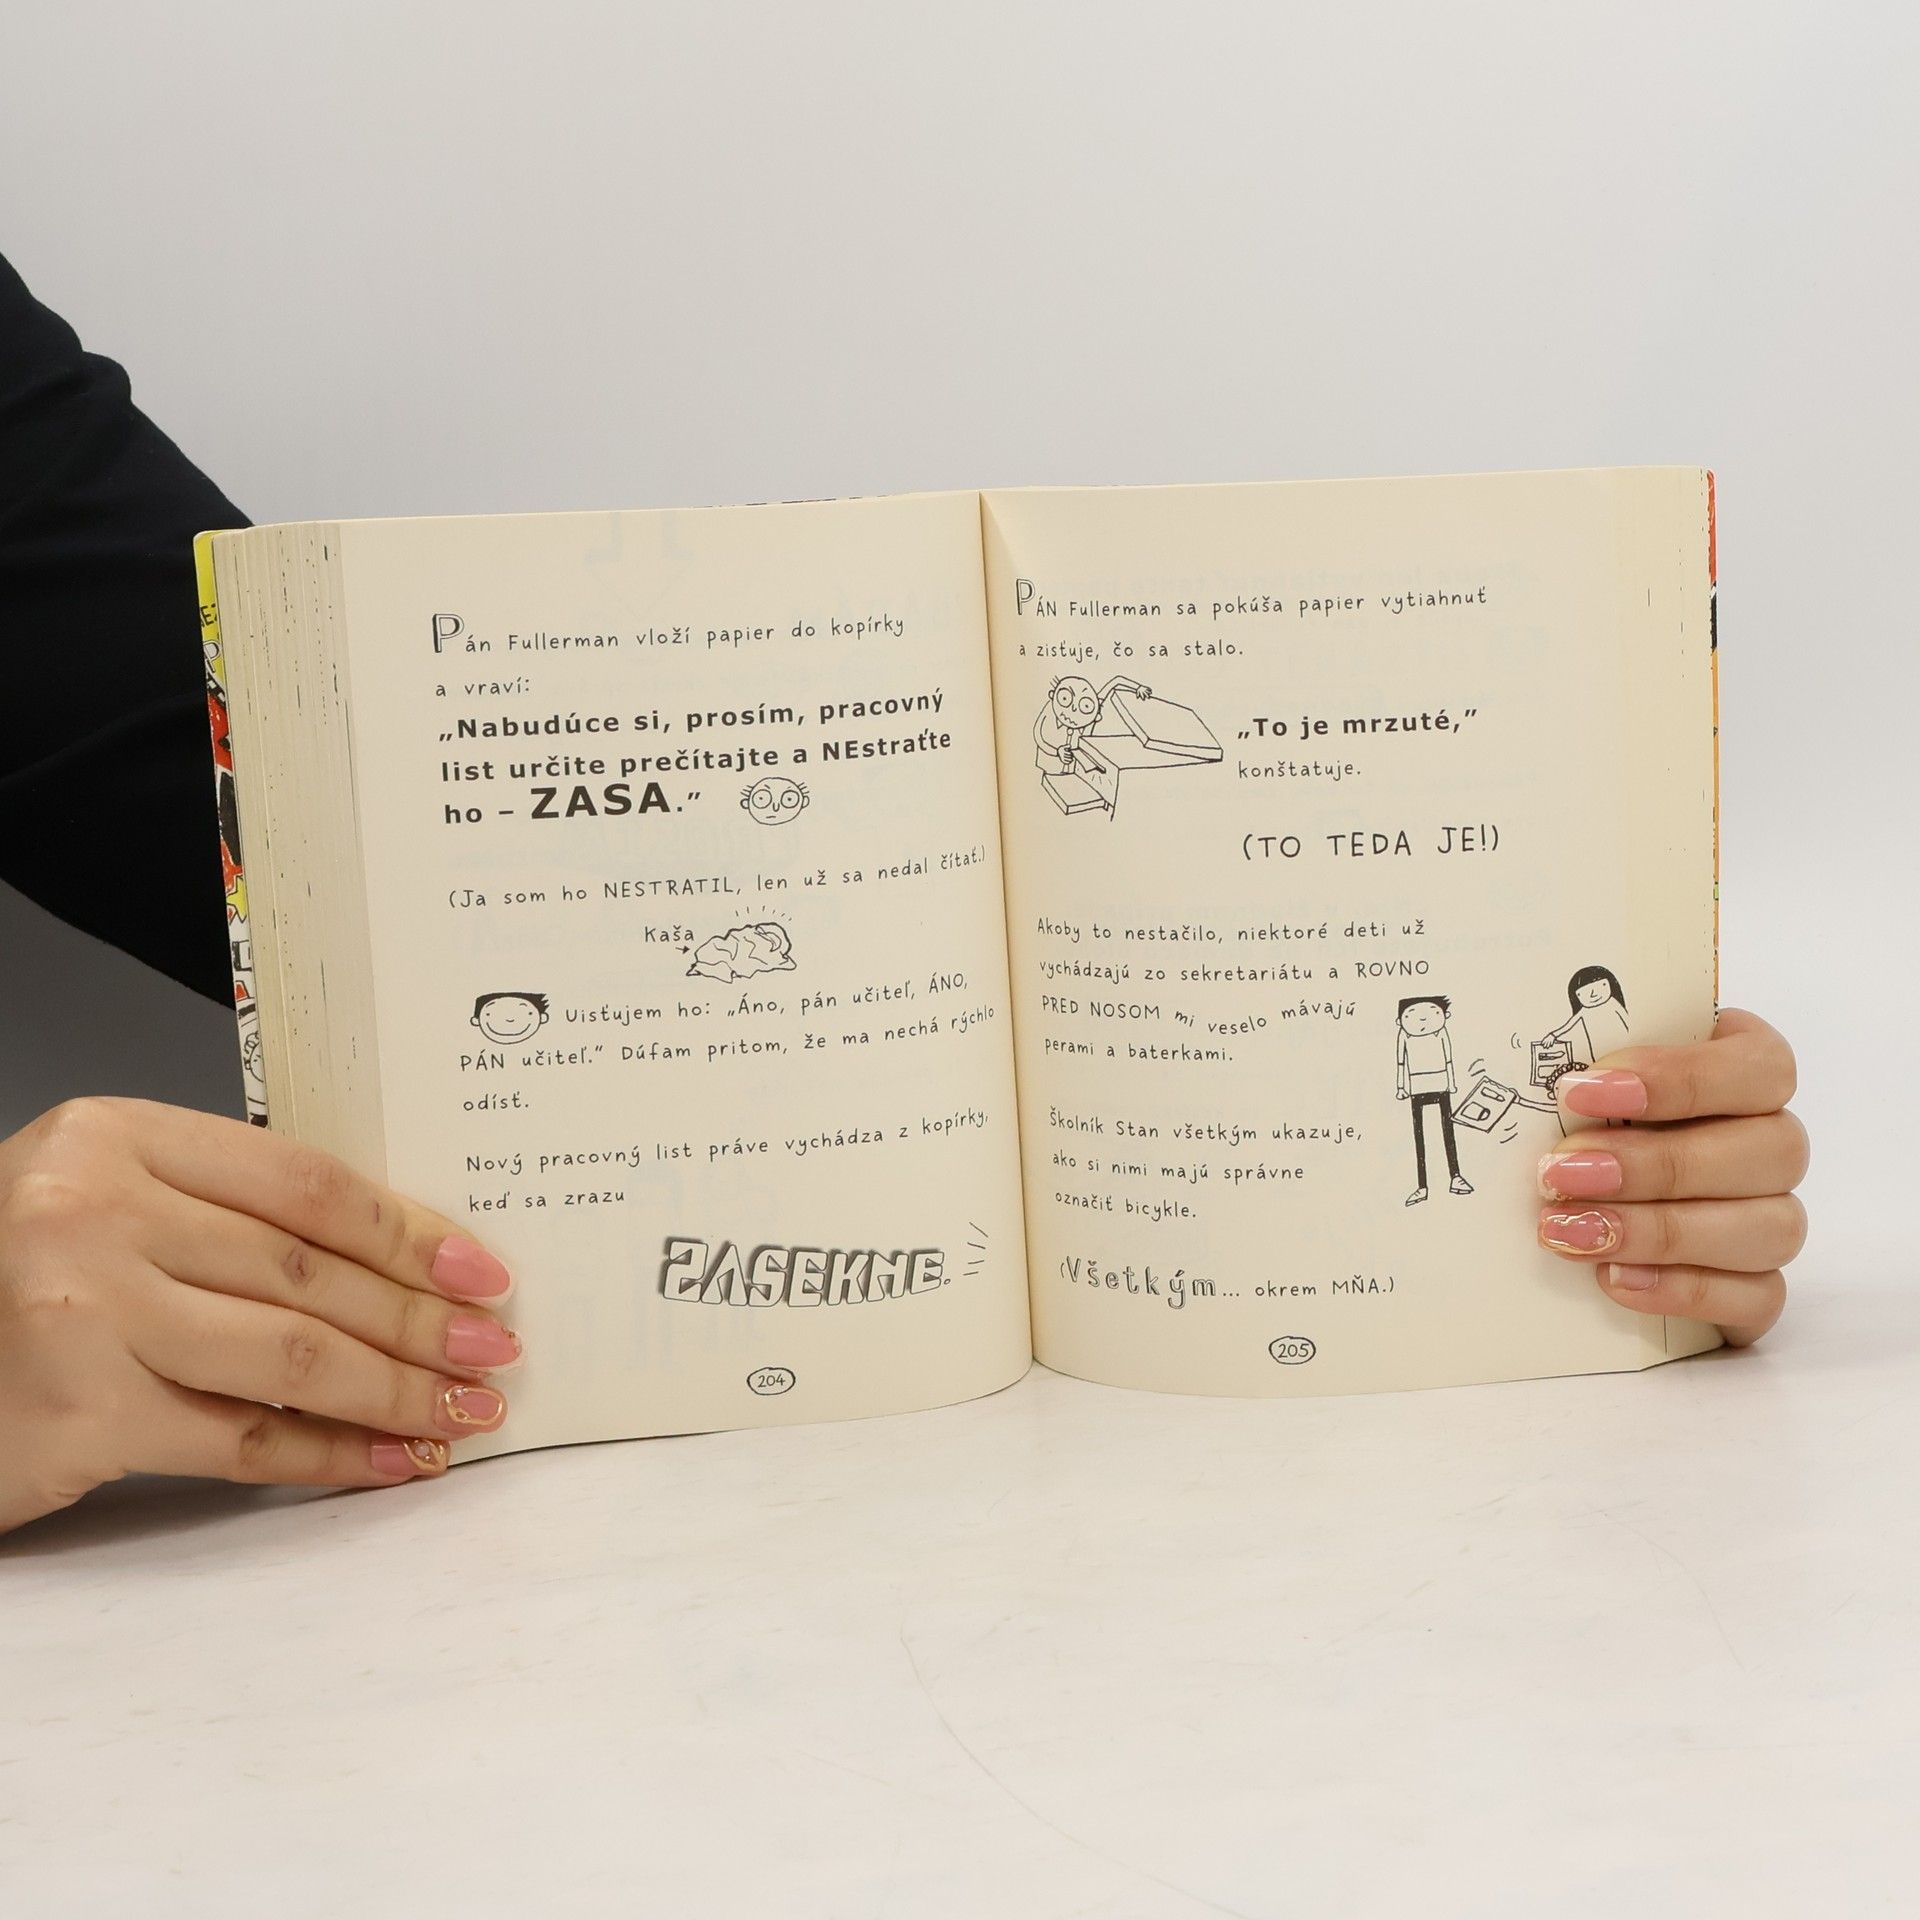 Pán Fullerman vloží papier do kopírky
a vraví:
„Nabudúce si, prosím, pracovný
list určite prečítajte a NEstraťte
ho – ZASA.”
(Ja som ho NESTRATIL, len už sa nedal čítať.)
Kaša
Uisťujem ho: „Áno, pán učiteľ, ÁNO,
PÁN učiteľ.“ Dúfam pritom, že ma nechá rýchlo
odísť.
Nový pracovný list práve vychádza z kopírky,
keď sa zrazu
ZASEKNE.
204
PÁN Fullerman sa pokúša papier vytiahnuť
a zisťuje, čo sa stalo.
„To je mrzuté,”
konštatuje.
(TO TEDA JE!)
Akoby to nestačilo, niektoré deti už
vychádzajú zo sekretariátu a ROVNO
PRED NOSOM mi veselo mávajú
perami a baterkami.
Školník Stan všetkým ukazuje,
ako si nimi majú správne
označiť bicykle.
(Všetkým... okrem MŇA.)
205